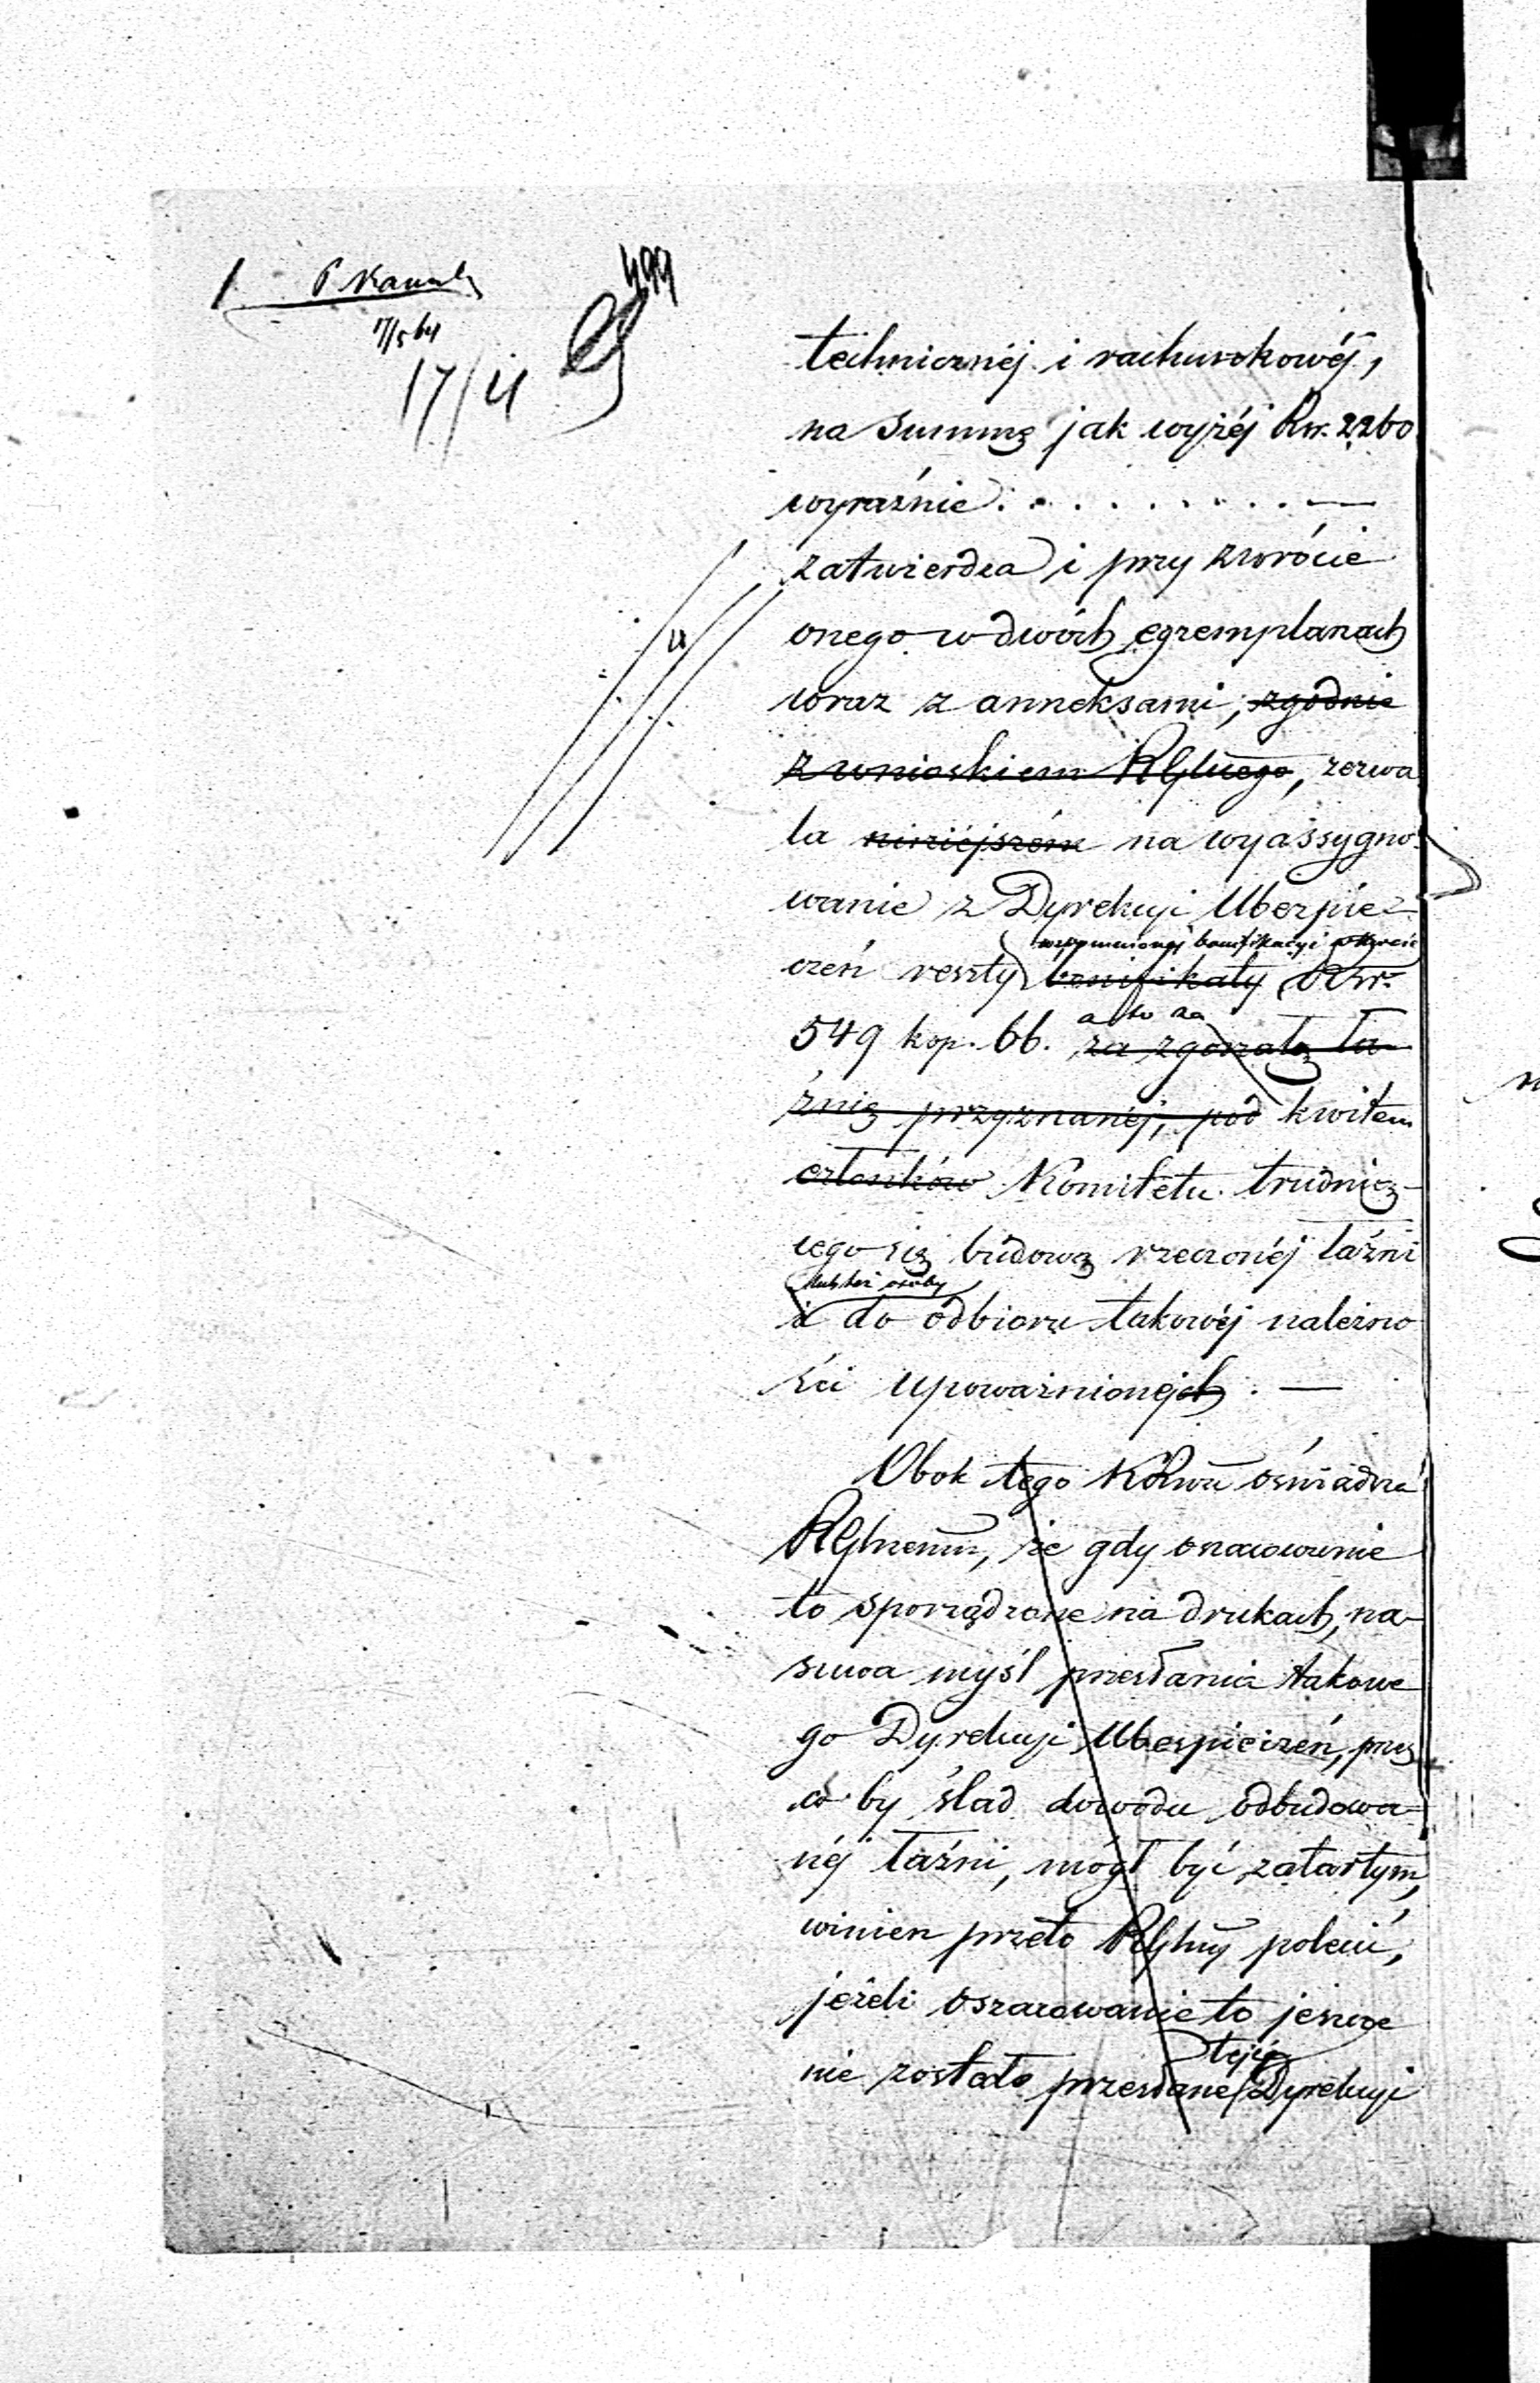 499
17/5 64
17/4
technicznéj i rachunkowéj,
na Summę jak wyżéj Rsr. 2260
wyraźnie . . . . . . . . . —
zatwierdza i przy zwrócie
onego w dwóch egzemplarzach
wraz z anneksami, zgodnie
z wnioskiem RGłnego, zezwa
la niniéjszém na wyassygno-
wanie z Dyrekcyi Ubezpie-
wspomnionéj bonifikacyi w kwocie
czeń reszty bonifikaty Rsr.
a to za
549 kop. 66. za zgorzałą ła-
źnię przyznanéj, pod kwitem
członków Komitetu trudnią-
cego się budową rzeczonéj łaźni
lub też osoby
i do odbioru takowéj należno
ści upoważnionéjch. —
Obok tego KRwu oświadcza
RGłnemu, że gdy oszacowanie
to sporządzone na drukach, na-
suwa myśl przesłania takowe
go Dyrekcyi Ubezpieczeń, przez
co by ślad dowodu odbudowa-
néj łaźni, mógł być zatartym,
winien przeto RGłny polecić,
jeżeli oszacowanie to jeszcze
tejże
nie zostało przesłane Dyrekcyi